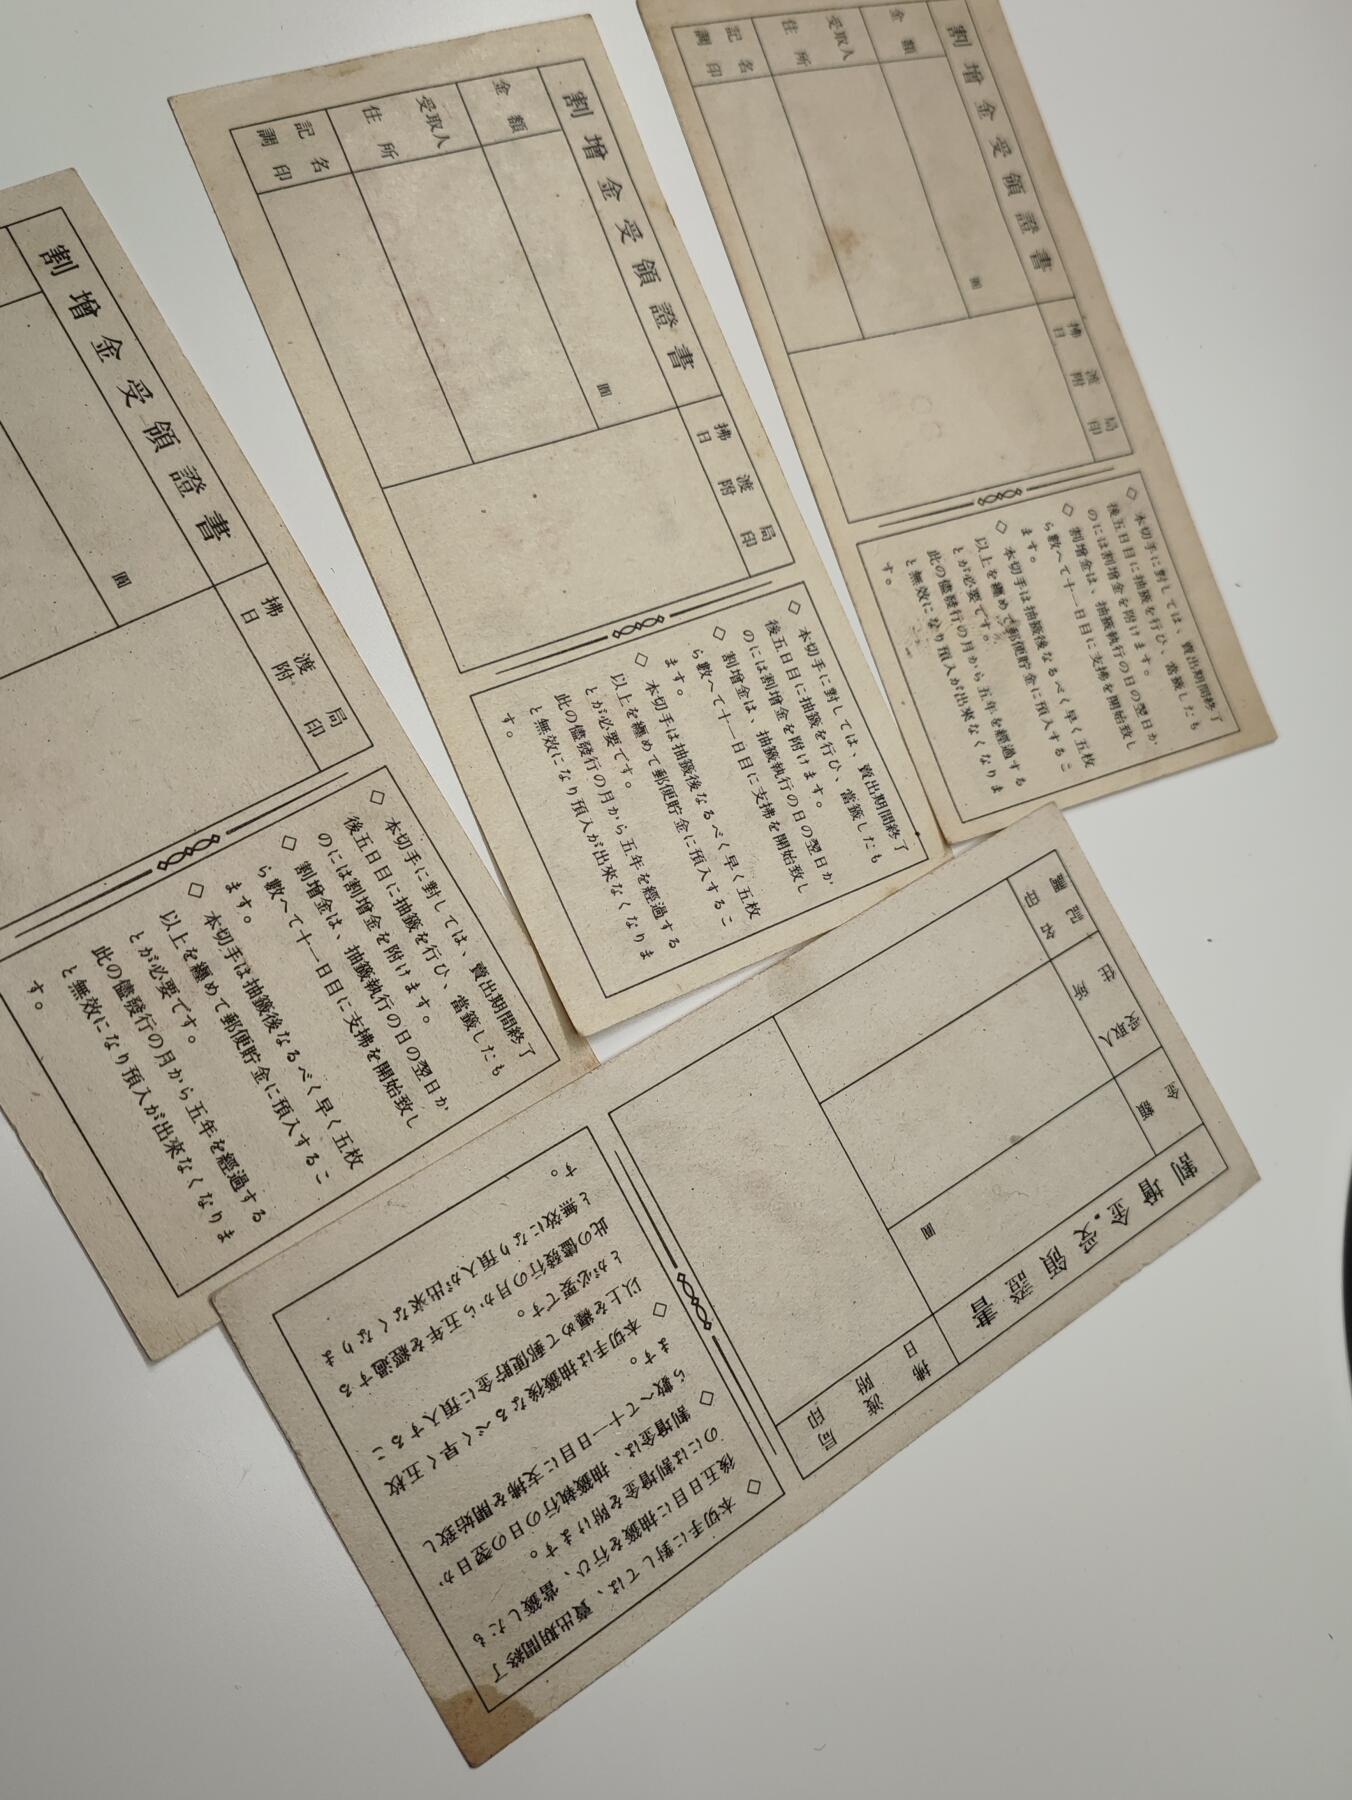 割增金受領證書
金額
圓
受取人
住所
記名
調印
拂渡局
日附印
◇本切手に對しては、賣出期間終了
後五日目に抽籤を行ひ、當籤したも
のには割增金を附けます。
◇割增金は、抽籤執行の日の翌日か
ら數へて十一日目に支拂を開始致し
ます。
◇本切手は抽籤後なるべく早く五枚
以上を纏めて郵便貯金に預入するこ
とが必要です。
此の儘發行の月から五年を經過する
と無效になり預入が出來なくなりま
す。
割增金受領證書
金額
圓
受取人
住所
記名
調印
拂渡局
日附印
◇本切手に對しては、賣出期間終了
後五日目に抽籤を行ひ、當籤したも
のには割增金を附けます。
◇割增金は、抽籤執行の日の翌日か
ら數へて十一日目に支拂を開始致し
ます。
◇本切手は抽籤後なるべく早く五枚
以上を纏めて郵便貯金に預入するこ
とが必要です。
此の儘發行の月から五年を經過する
と無效になり預入が出來なくなりま
す。
割增金受領證書
圓
拂渡局
日附印
◇本切手に對しては、賣出期間終了
後五日目に抽籤を行ひ、當籤したも
のには割增金を附けます。
◇割增金は、抽籤執行の日の翌日か
ら數へて十一日目に支拂を開始致し
ます。
◇本切手は抽籤後なるべく早く五枚
以上を纏めて郵便貯金に預入するこ
とが必要です。
此の儘發行の月から五年を經過する
と無效になり預入が出來なくなりま
す。
割增金受領證書
金額
圓
受取人
住所
記名
調印
拂渡局
日附印
◇本切手に對しては、賣出期間終了
後五日目に抽籤を行ひ、當籤したも
のには割增金を附けます。
◇割增金は、抽籤執行の日の翌日か
ら數へて十一日目に支拂を開始致し
ます。
◇本切手は抽籤後なるべく早く五枚
以上を纏めて郵便貯金に預入するこ
とが必要です。
此の儘發行の月から五年を經過する
と無效になり預入が出來なくなりま
す。